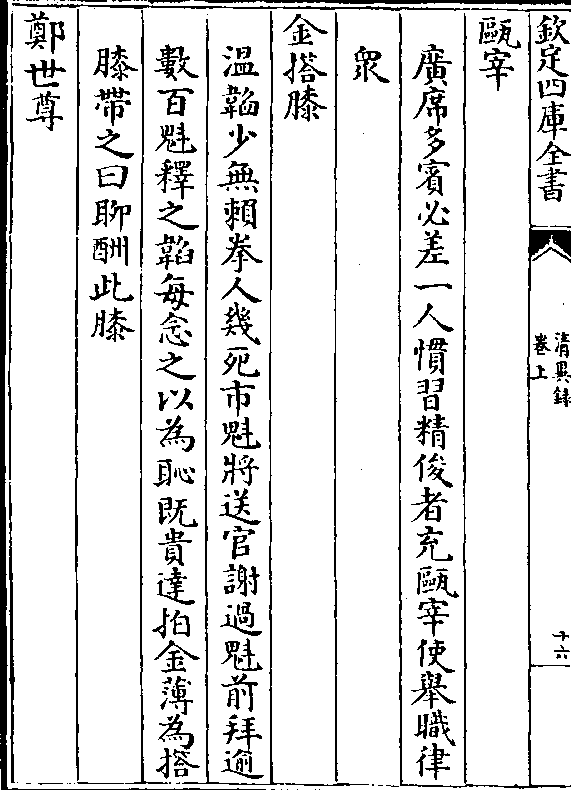 欽定四庫全書
清異録
卷上
十六
甌宰
廣席多賓必差一人慣習精俊者充甌宰使舉職律
衆
金搭膝
温韜少無賴拳人幾死市魁將送官謝過魁前拜逾
數百魁釋之韜每念之以為恥既貴達拍金薄為搭
膝帶之曰聊酬此膝
鄭世尊